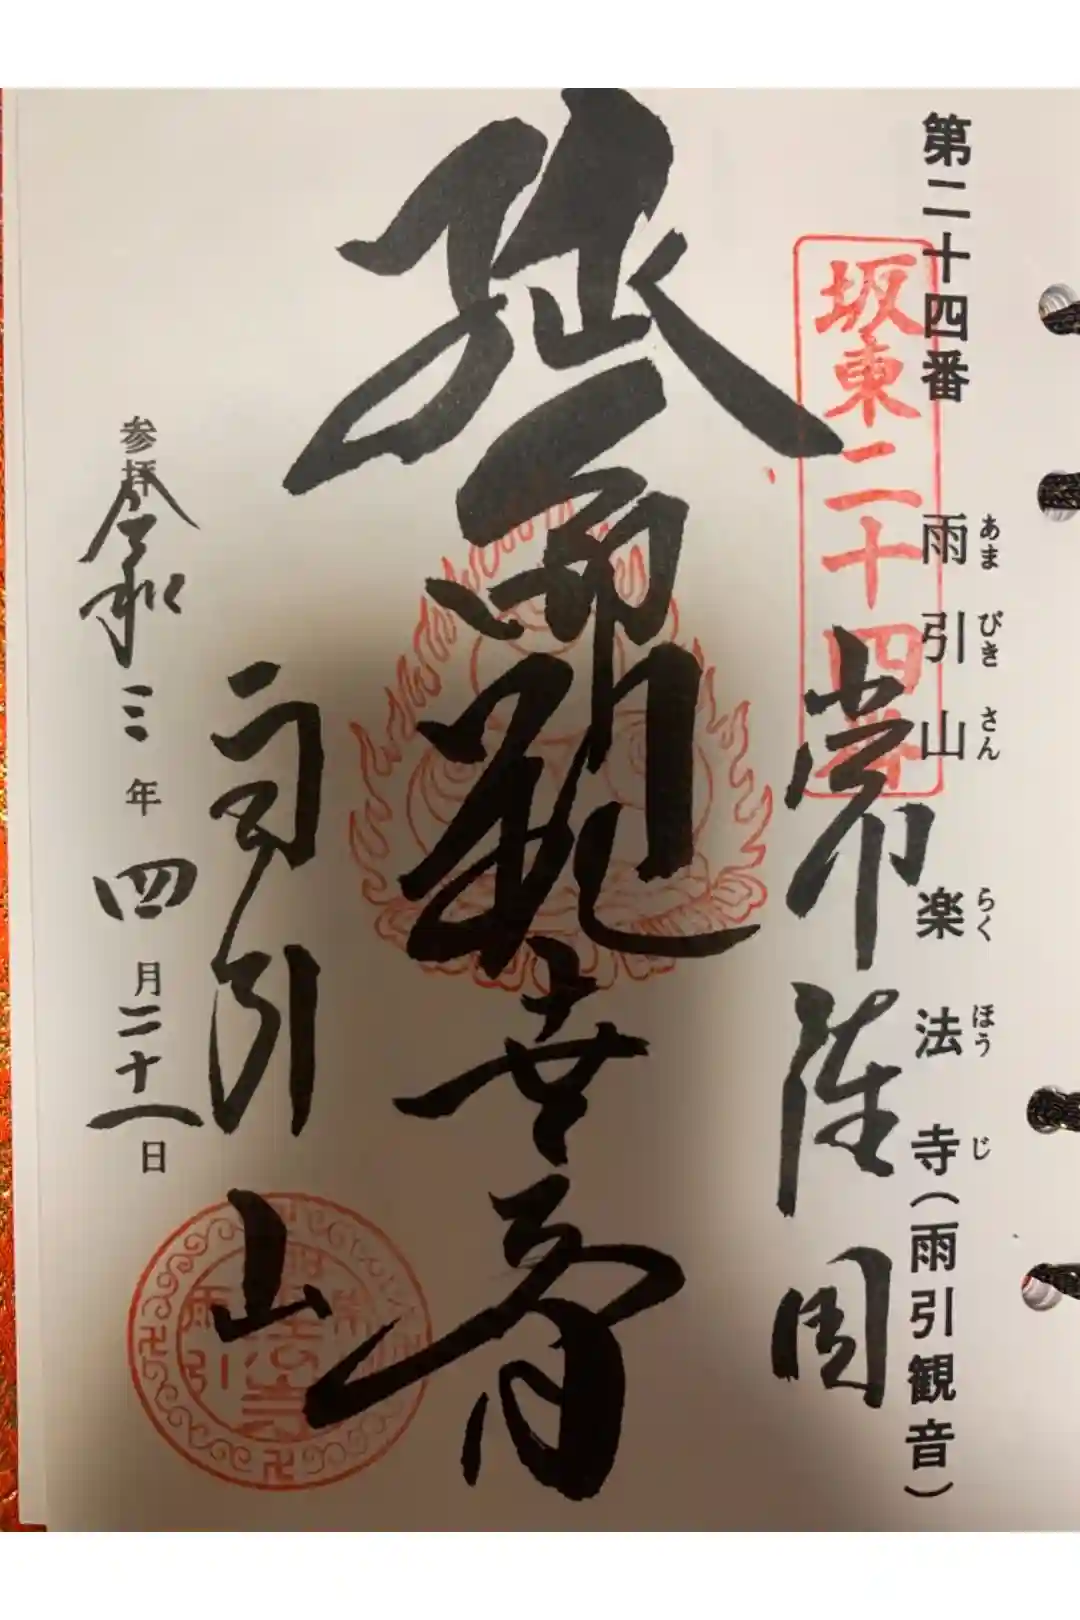 第二十四番 雨引山 楽法寺(雨引観音)
あまびきさん らくほうじ
坂東二十四番
常陸国
延命観世音
雨引山
参拝 令和三年四月二十一日